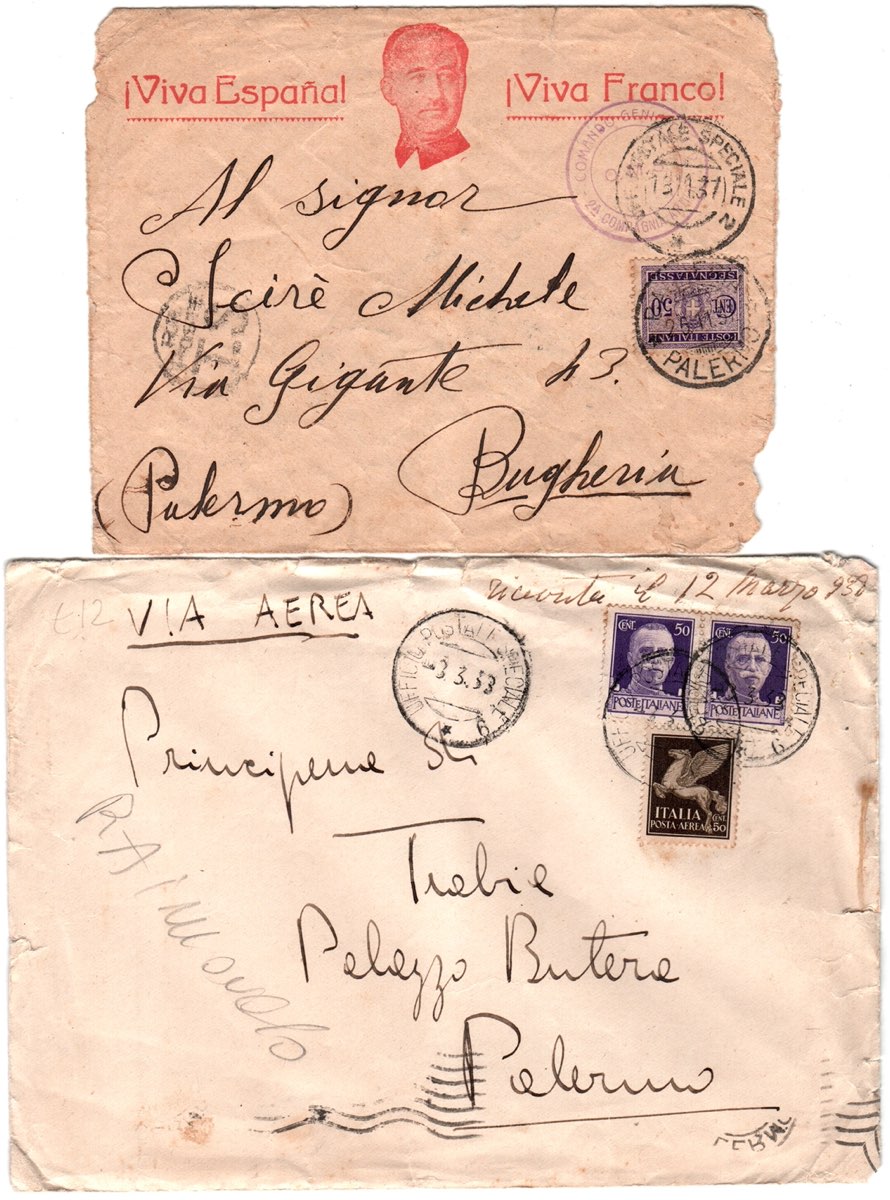 ¡Viva España! ¡Viva Franco!
COMANDO GENI
2ª COMPAGNIA
POSTALE SPECIALE 2
Al signor
Scirè Michele
Via Gigante 43.
(Palermo) Bagheria
POSTE ITALIANE
SEGNATASSE
CENT 50
PALERMO
ricevuta il 12 Marzo 938
£12
VIA AEREA
UFFICIO POSTALE SPECIALE 6
3.3.38
CENT. 50
POSTE ITALIANE
CENT. 50
POSTE ITALIANE
ITALIA
POSTA-AEREA
CENT. 50
Trabia
Palazzo Butera
Palermo